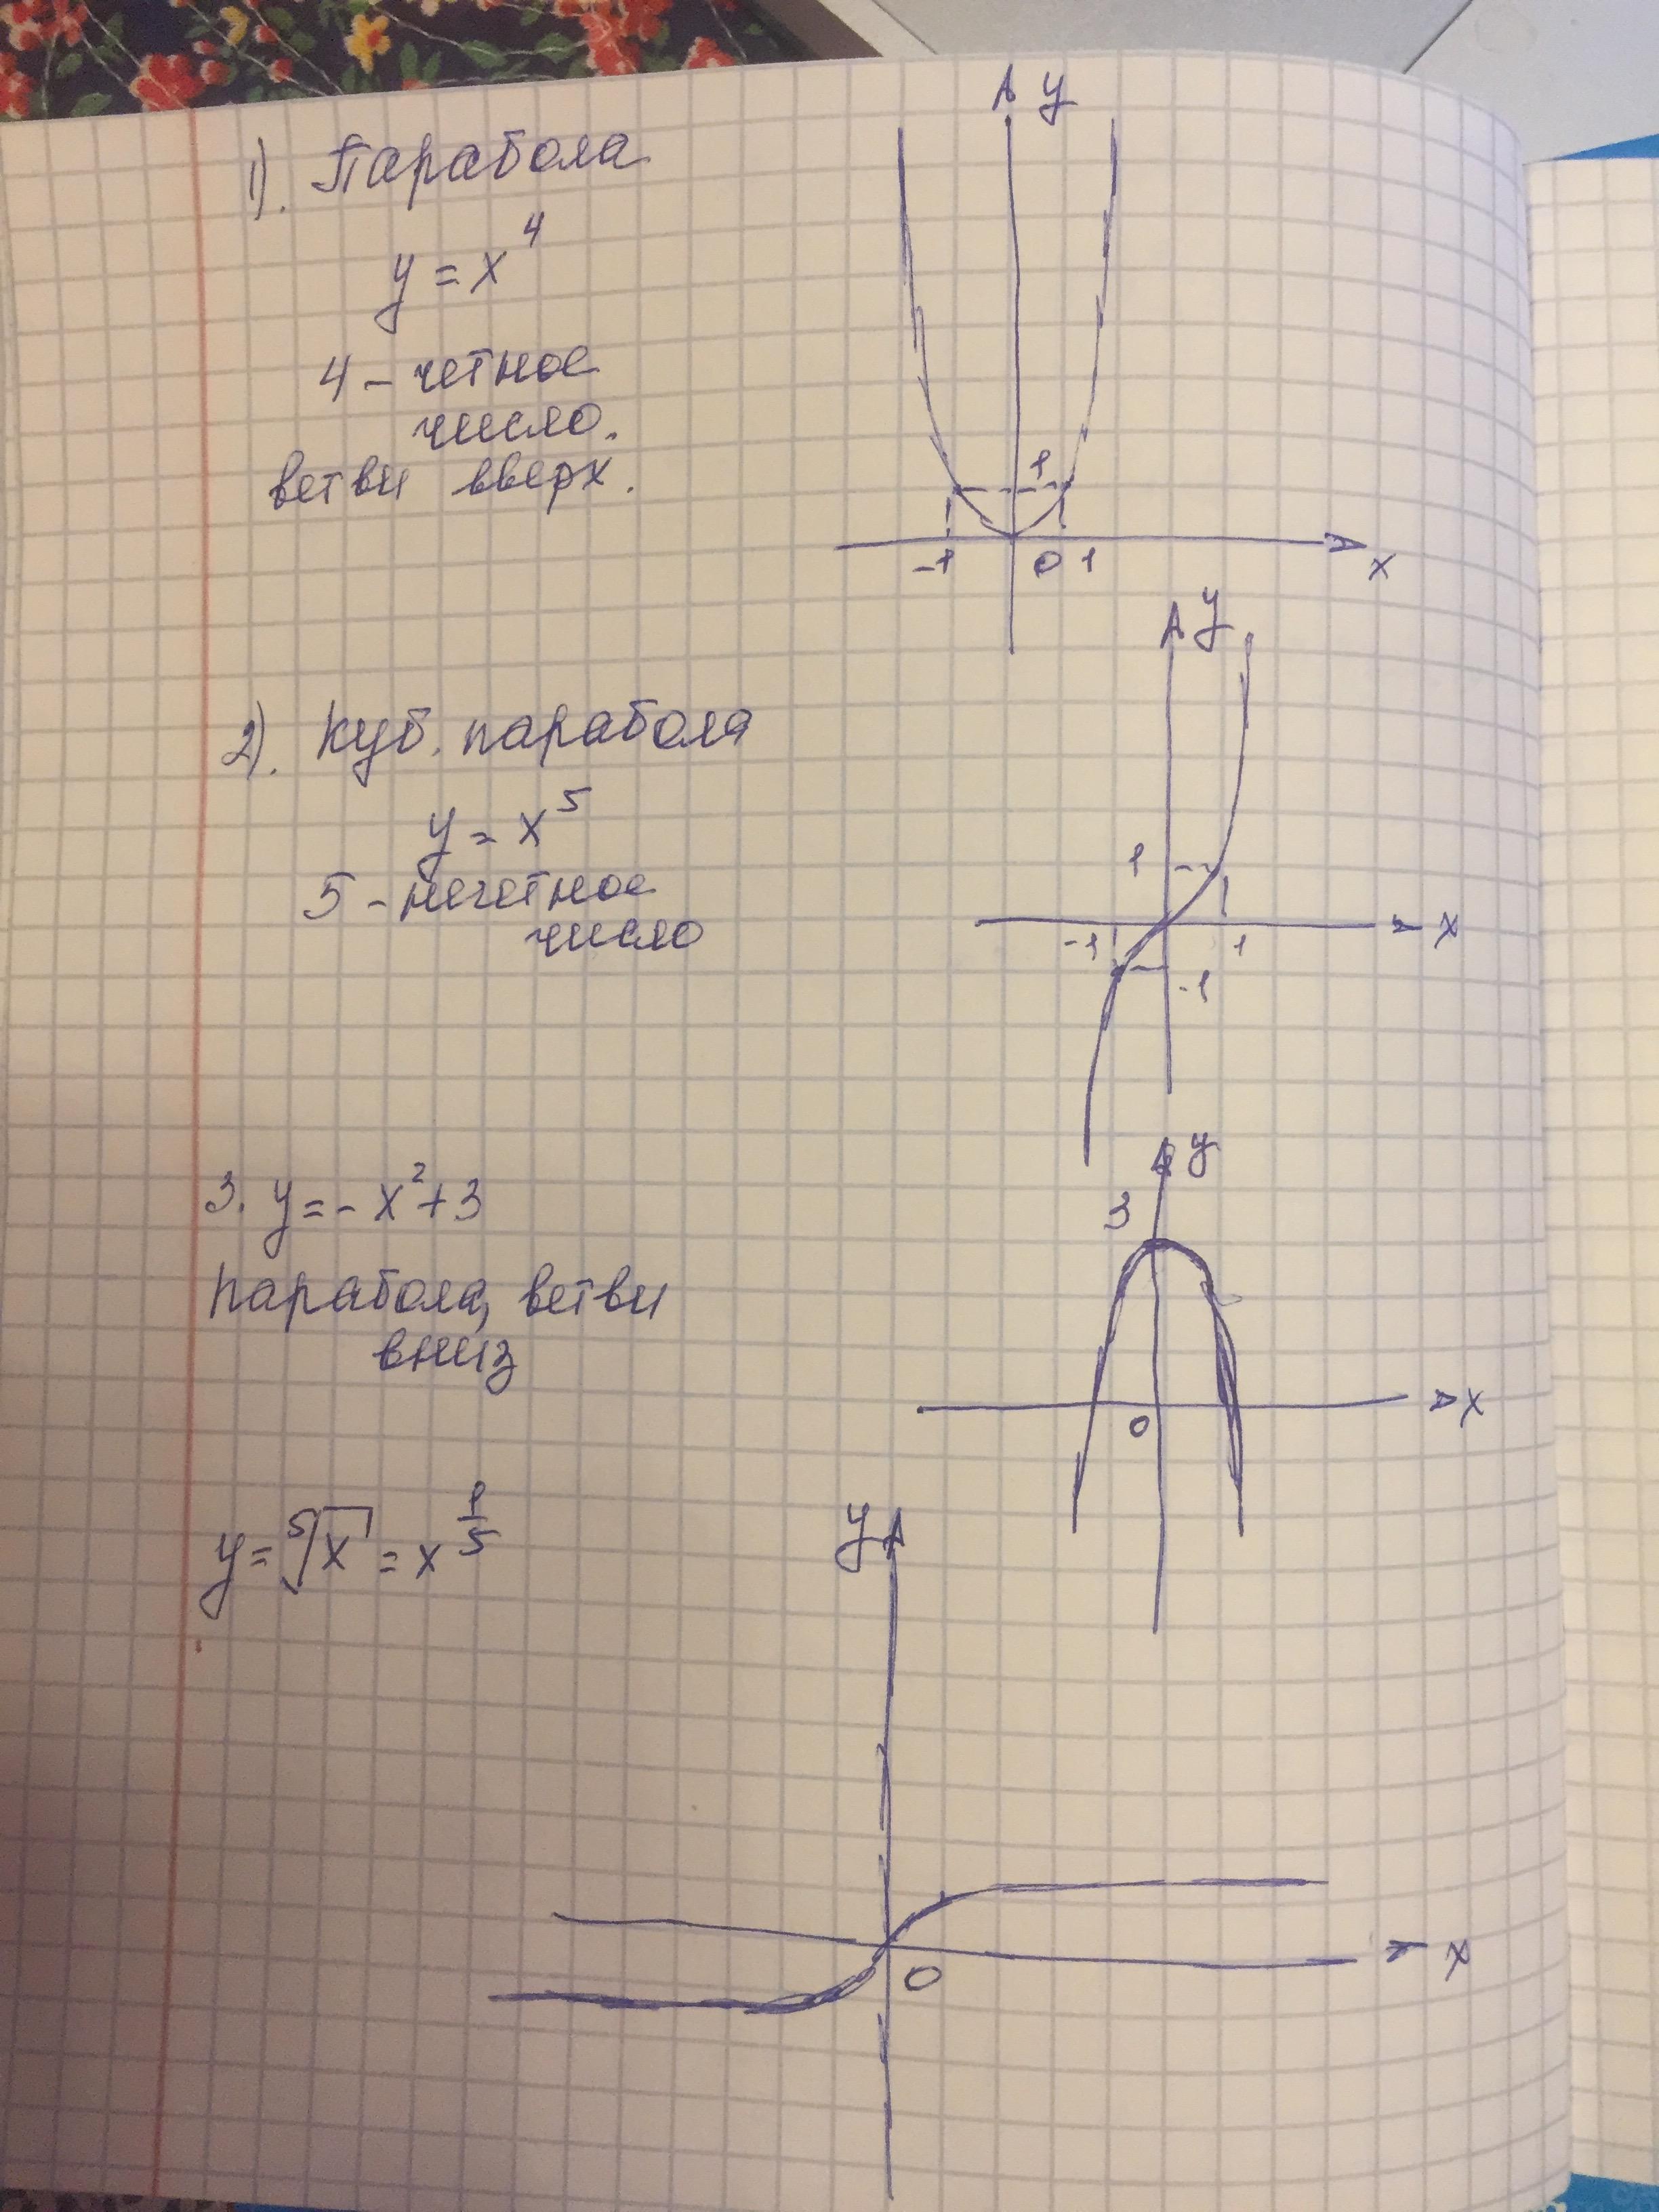 1). Парабола
y = x⁴
4 – четное
число.
ветви вверх.
y
1
-1 0 1 x
2). Куб. парабола
y = x⁵
5 – нечетное
число
y
1
-1 1 x
-1
3. y = - x² + 3
парабола, ветви
вниз
y
3
0 x
y = ⁵√x = x^(1/5)
y
0 x